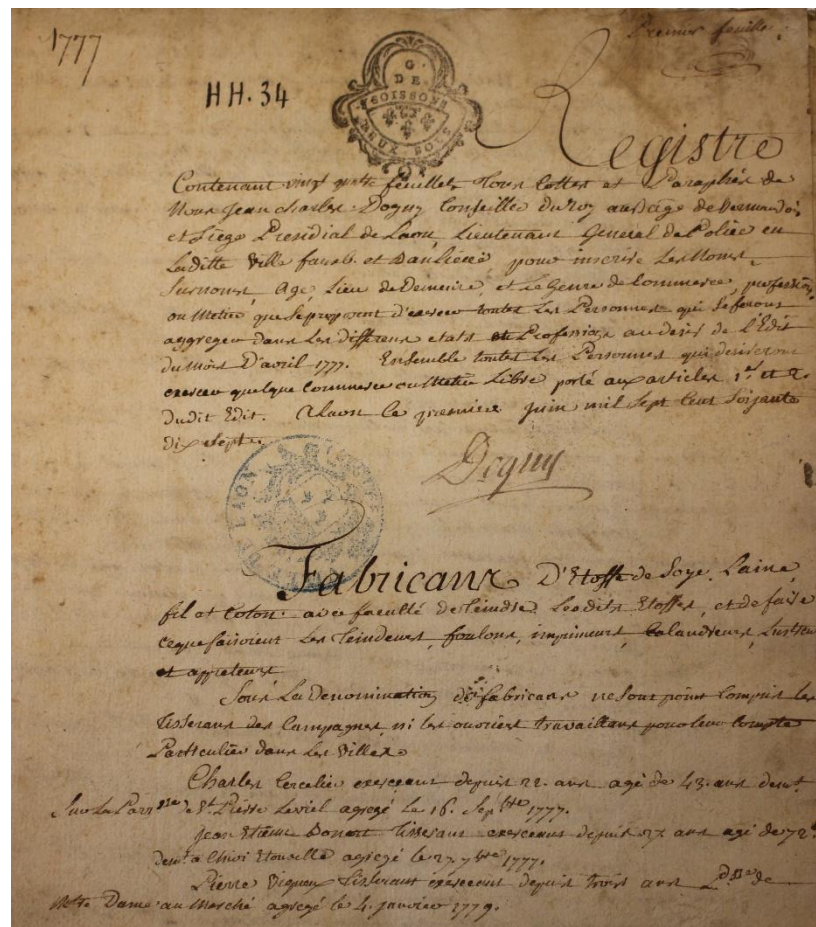 1777
Premier feuille
HH. 34
G.
DE
SOISSONS
DEUX SOLS
Registre
Contenant vingt quatre feuilles tous cottés et Paraphés de
Nous Jean Charles Dogny Conseiller du Roy au Siége de Vermandois
et Siége Presidial de Laon, Lieutenant General de Police en
Laditte Ville faub. et Banlieüe pour inscrire Les Noms,
Surnoms, Age, Lieu de Demeure, et Le Genre de Commerce, profession,
ou Metier que se proposent d'exercer toutes Les Personnes qui se feront
aggreger dans Les differens etats et Professions au desir de L'Edit
du Mois D'avril 1777. Ensemble toutes Les Personnes qui desireront
exercer quelque Commerce ou Metier Libre porté aux articles 1er et 2.
dudit Edit. A Laon le premier Juin mil Sept Cent Soixante
dix Sept.
Dogny
VILLE DE LAON
Fabricans D'Etoffe de Soye, Laine,
fil et Coton avec faculté de teindre Lesdits Etoffes, et de faire
ce que faisoient Les teindeurs, foulons, imprimeurs, Calandreurs,
et appreteurs
Sous La Denomination de fabricans ne Sont point Compris les
Tisserans des Campagnes, ni les ouvriers travaillans pour leur Compte
Particulier dans Les Villes
Charles exerceant depuis 22. ans agé de 43. ans demt.
Sur La Parsse de St. Pierre Leviel agregé le 16. Sepbre 1777.
Jean Etienne Tisserant exerceant depuis 27 ans agé de 72.
demt. a Chivi Etouvelle agregé le 27. 7bre 1777.
Pierre Tisserant exerceant depuis trois ans de
Notre Dame au Marché agregé le 4. janvier 1779.